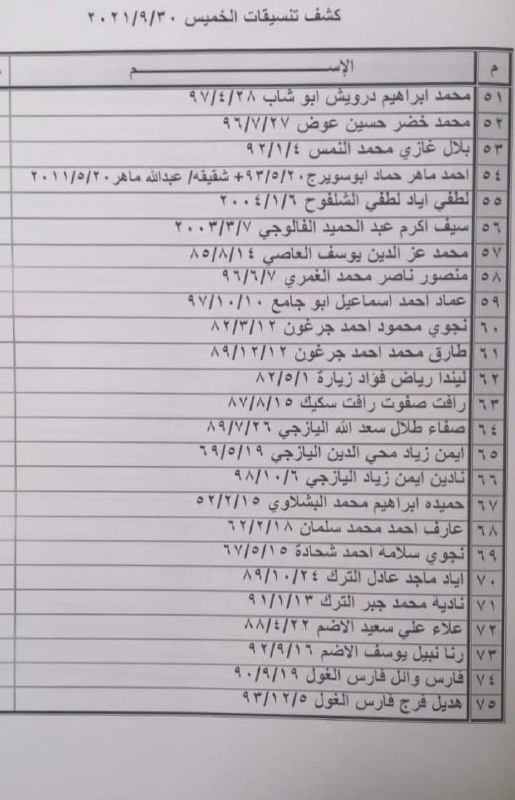 كشف تنسيقات الخميس ٢٠٢١/٩/٣٠
م الإســـــــــم
٥١ محمد ابراهيم درويش ابو شاب ٩٧/٤/٢٨
٥٢ محمد خضر حسين عوض ٩٦/٧/٢٧
٥٣ بلال غازي محمد النمس ٩٢/١/٤
٥٤ احمد ماهر حماد ابوسويرح ٩٣/٥/٢٠+ شقيقه/ عبدالله ماهر ٢٠١١/٥/٢٠
٥٥ لطفي اياد لطفي الشلفوح ٢٠٠٤/١/٦
٥٦ سيف اكرم عبد الحميد الفالوجي ٢٠٠٣/٣/٧
٥٧ محمد عز الدين يوسف العاصي ٨٥/٨/١٤
٥٨ منصور ناصر محمد الغمري ٩٦/٦/٧
٥٩ عماد احمد اسماعيل ابو جامع ٩٧/١٠/١٠
٦٠ نجوي محمود احمد جرغون ٨٢/٣/١٢
٦١ طارق محمد احمد جرغون ٨٩/١٢/١٢
٦٢ ليندا رياض فؤاد زيارة ٨٢/٥/١
٦٣ رافت صفوت رافت سكيك ٨٧/٨/١٥
٦٤ صفاء طلال سعد الله اليازجي ٨٩/٧/٢٦
٦٥ ايمن زياد محي الدين اليازجي ٦٩/٥/١٩
٦٦ نادين ايمن زياد اليازجي ٩٨/١٠/٦
٦٧ حميده ابراهيم محمد البشلاوي ٥٢/٢/١٥
٦٨ عارف احمد محمد سلمان ٦٢/٢/١٨
٦٩ نجوي سلامه احمد شحادة ٦٧/٥/١٥
٧٠ اياد ماجد عادل الترك ٨٩/١٠/٢٤
٧١ نادية محمد جبر الترك ٩١/١/١٣
٧٢ علاء علي سعيد الاضم ٨٨/٤/٢٢
٧٣ رنا نبيل يوسف الاضم ٩٢/٩/١٦
٧٤ فارس وائل فارس الغول ٩٠/٩/١٩
٧٥ هديل فرج فارس الغول ٩٣/١٢/٥